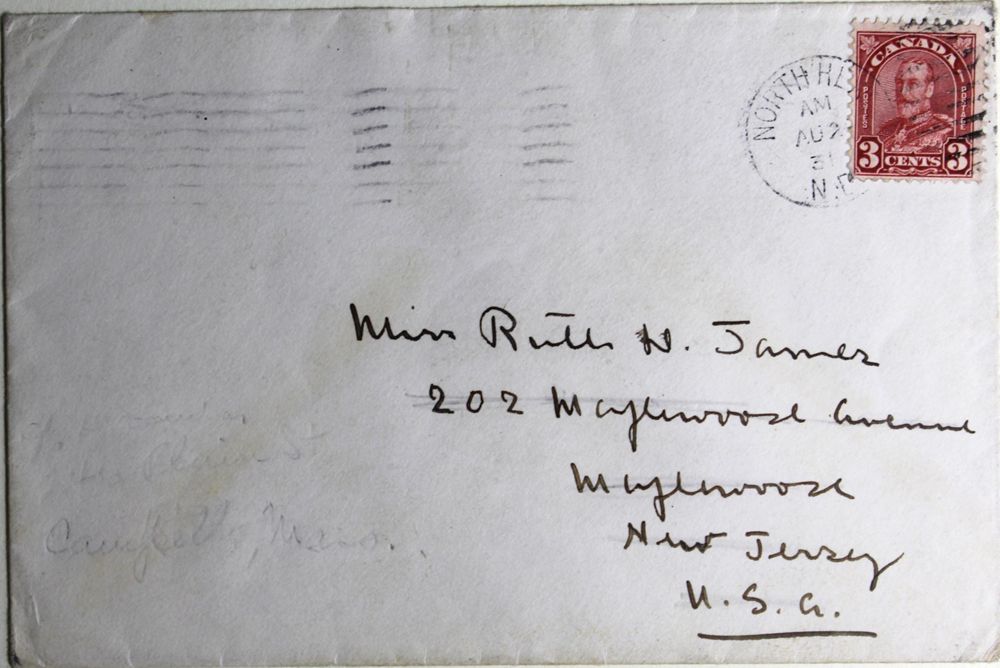 CANADA
POSTES POSTAGE
3 CENTS 3
NORTH HE
AM
AU 2
31
N.B
Miss Ruth H. James
202 Maplewood Avenue
Maplewood
New Jersey
U.S.A.
Plain St
Campbello, Mass.